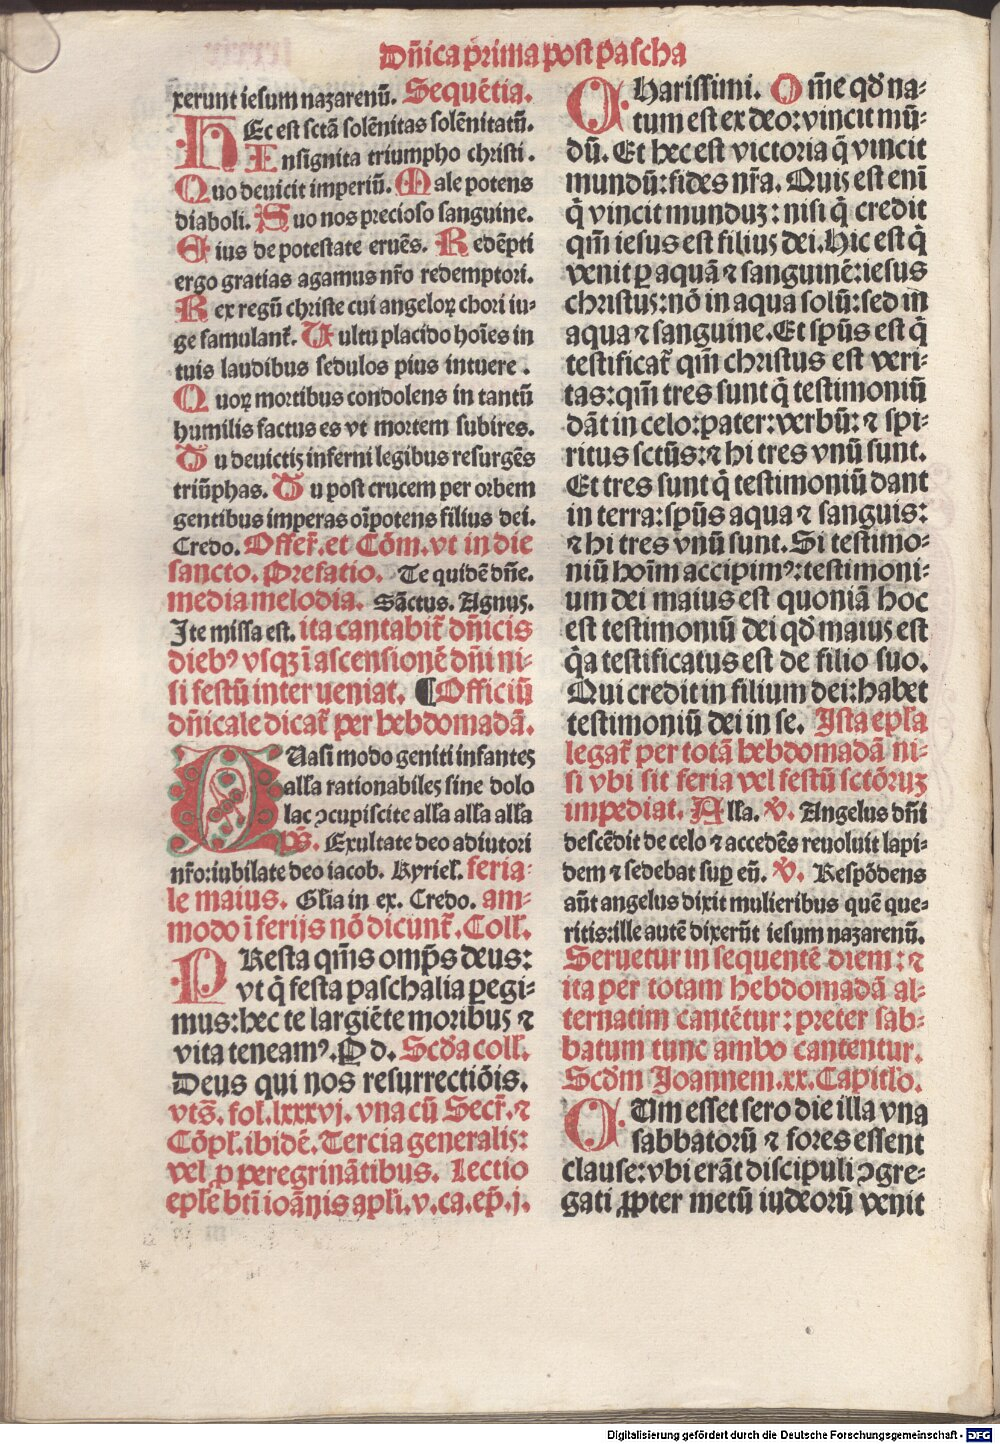 Dñica prima post pascha
xerunt iesum nazarenū. Sequētia.
HEc est sctā solēnitas solēnitatū.
Insignita triumpho christi.
Quo deuicit imperiū. Male potens
diaboli. Suo nos precioso sanguine.
Eius de potestate eruēs. Redēpti
ergo gratias agamus nr̄o redemptori.
Rex regū christe cui angeloꝝ chori iu⸗
ge famulant̄. Vultu placido hoīes in
tuis laudibus sedulos pius intuere.
Quoꝝ mortibus condolens in tantū
humilis factus es vt mortem subires.
Tu deuictis inferni legibus resurgēs
triūphas. Tu post crucem per orbem
gentibus imperas oīpotens filius dei.
Credo. Offer̄. et Cōm. vt in die
sancto. Prefatio. Te quidē dn̄e.
media melodia. Sāctus. Agnus.
Ite missa est. ita cantabit̄ dñicis
diebꝰ vsqꝫ ī ascensionē dñi ni⸗
si festū inter ueniat. ¶ Officiū
dñicale dicat̄ per hebdomadā.
QUasi modo geniti infantes
alla rationabiles sine dolo
lac ꝯcupiscite alla alla alla
ps̄. Exultate deo adiutori
nr̄o: iubilate deo iacob. Kyriel̄. feria⸗
le maius. Gl̄ia in ex. Credo. am⸗
modo ī ferijs nō dicunt̄. Coll̄.
PResta qm̄s omp̄s deus:
vt q̄ festa paschalia ꝑegi⸗
mus: hec te largiēte moribus ⁊
vita teneamꝰ. P d. Scd̄a coll̄.
Deus qui nos resurrectiōis.
vts̄. fol̄. lxxxvj. vna cū Secr̄. ⁊
Cōpl̄. ibidē. Tercia generalis:
vel ꝓ peregrinātibus. Lectio
epl̄e bt̄i ioānis apl̄i. v. ca. ep̄. j.
CHarissimi. Om̄e qd̄ na⸗
tum est ex deo: vincit mū⸗
dū. Et hec est victoria q̄ vincit
mundū: fides nr̄a. Quis est enī
q̄ vincit munduꝫ: nisi q̄ credit
qm̄ iesus est filius dei. Hic est q̄
venit ꝑ aquā ⁊ sanguinē: iesus
christus: nō in aqua solū: sed in
aqua ⁊ sanguine. Et sp̄us est q̄
testificat̄ qm̄ christus est veri⸗
tas: qm̄ tres sunt q̄ testimoniū
dāt in celo: pater: verbū: ⁊ spi⸗
ritus sctūs: ⁊ hi tres vnū sunt.
Et tres sunt q̄ testimoniū dant
in terra: sp̄us aqua ⁊ sanguis:
⁊ hi tres vnū sunt. Si testimo⸗
niū hoīm accipimꝰ: testimoni⸗
um dei maius est quoniā hoc
est testimoniū dei qd̄ maius est
q̄a testificatus est de filio suo.
Qui credit in filium dei: habet
testimoniū dei in se. Ista epl̄a
legat̄ per totā hebdomadā ni⸗
si vbi sit feria vel festū sctōruꝫ
impediat. Alla. ℣. Angelus dñi
descēdit de celo ⁊ accedēs reuoluit lapi⸗
dem ⁊ sedebat suꝑ eū. ℣. Respōdens
aūt angelus dixit mulieribus quē que⸗
ritis: ille autē dixerūt iesum nazarenū.
Seruetur in sequentē diem: ⁊
ita per totam hebdomadā al⸗
ternatim cantētur: preter sab⸗
batum tunc ambo cantentur.
Scd̄m Joannem. xx. Capitl̄o.
CUm esset sero die illa vna
sabbatorū ⁊ fores essent
clause: vbi erāt discipuli ꝯgre⸗
gati ꝓpter metū iudeorū venit
Digitalisierung gefördert durch die Deutsche Forschungsgemeinschaft - DFG